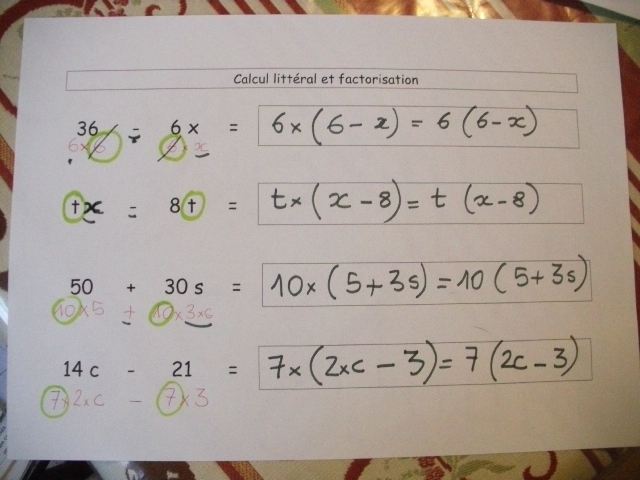 Calcul littéral et factorisation
36 - 6 x = 6 × (6 - x) = 6 (6 - x)
6 × 6 6 × x
t x - 8 t = t × (x - 8) = t (x - 8)
50 + 30 s = 10 × (5 + 3s) = 10 (5 + 3s)
10 × 5 + 10 × 3 × s
14 c - 21 = 7 × (2 × c - 3) = 7 (2c - 3)
7 × 2 × c - 7 × 3